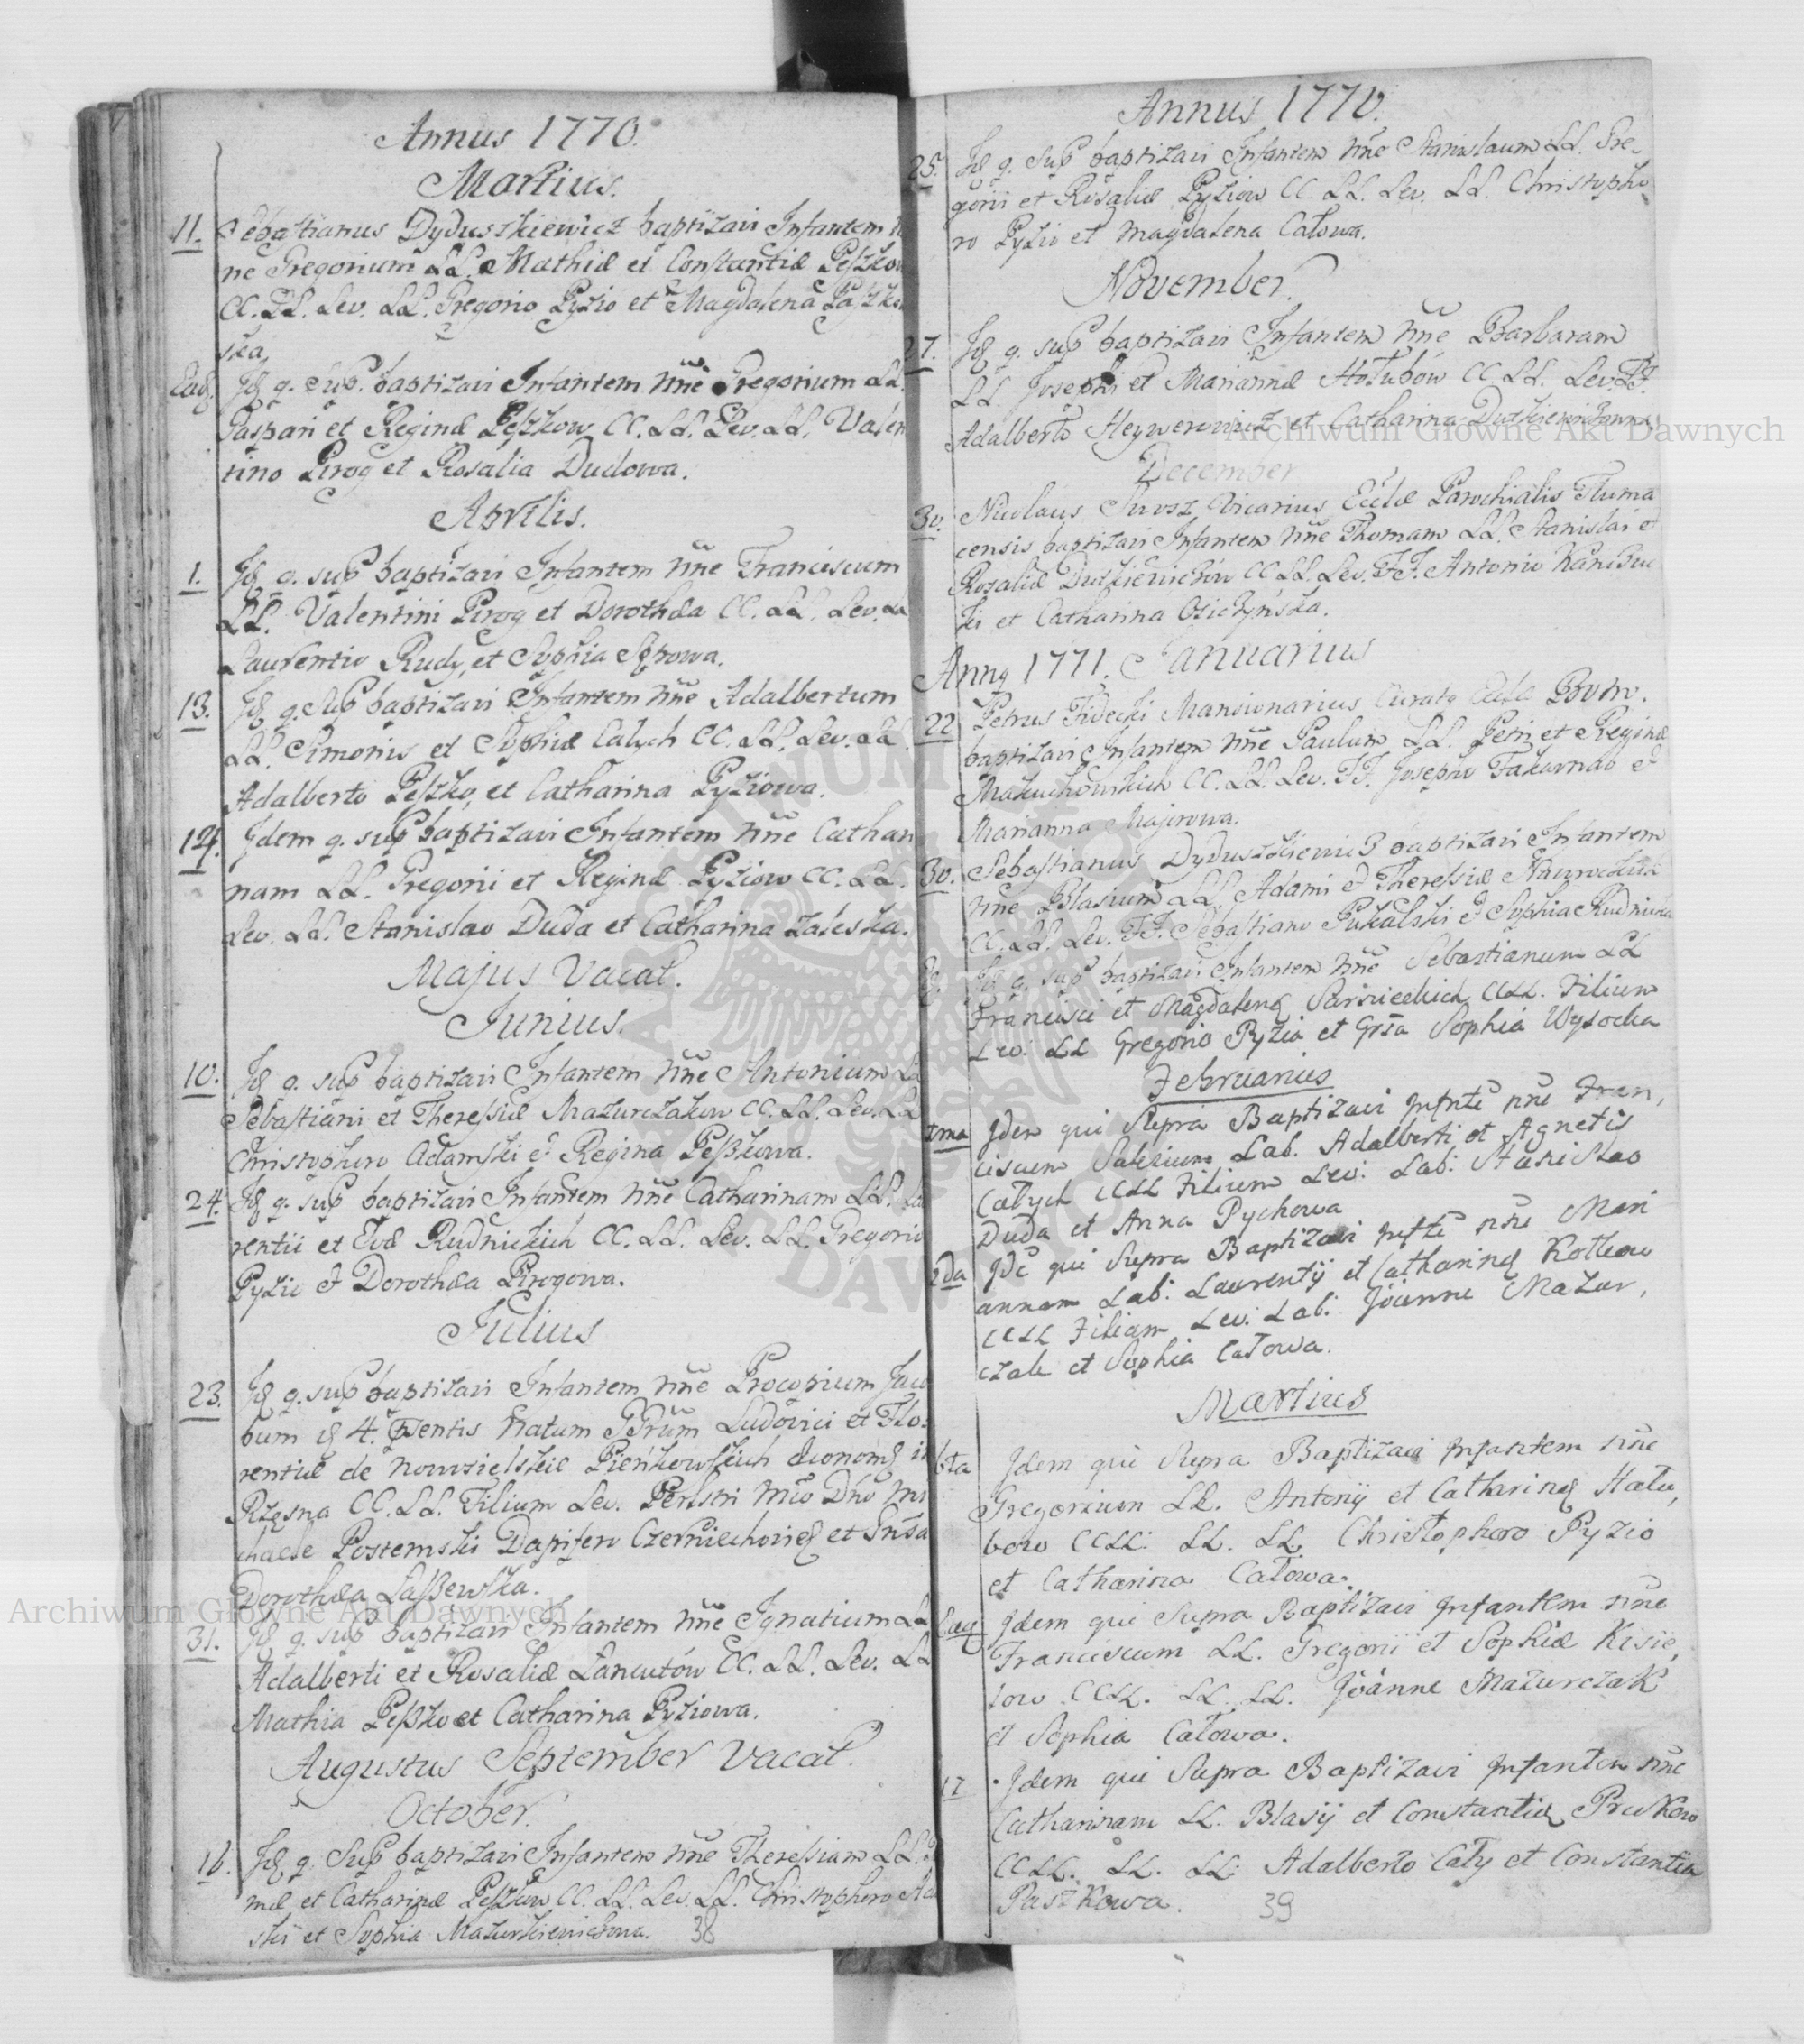 Annus 1770.
Martius.
11. Sebastianus Dyduszkiewicz baptizavi Infantem
ne Gregorium LL. Mathiæ et Constantiæ Peszkow
CC. LL. Lev. LL. Gregorio Pyzio et Magdalena
ska,
Ead. Id q. sup. baptizavi Infantem nne Gregorium LL.
Gaspari et Reginæ Peszkow CC. LL. Lev. LL. Valen
tino Pirog et Rosalia Dudowa.
Aprilis.
1. Id q. sup baptizavi Infantem nne Franciscum
LL. Valentini Pirog et Dorothæa CC. LL. Lev. LL
Laurentio Rudy, et Sophia
13. Id q. sup baptizavi Infantem nne Adalbertum
LL. Simonis et Sophiæ Calych CC. LL. Lev. LL.
Adalberto Peszko, et Catharina Pyziowa.
14. Idem q. sup baptizavi Infantem nne Cathari
nam LL. Gregorii et Reginæ Pyziow CC. LL.
Lev. LL. Stanislao Duda et Catharina Zaleska.
Majus Vacat.
Junius.
10. Id q. sup baptizavi Infantem nne Antonium LL
Sebastiani et Theressiæ Mazurczakow CC. LL. Lev. LL
Christophoro Adamski et Regina Peszkowa.
24. Id q. sup baptizavi Infantem nne Catharinam LL. Lau
rentii et Evæ Rudnickich CC. LL. Lev. LL. Gregorio
Pyzio et Dorothæa Pirogowa.
Julius
23. Id q. sup baptizavi Infantem nne Procopium Jaco
bum 4. natum Ludovici et Flo
rentiæ de Nowosielskie Pieńkowskich in
Rzęsna CC. LL. Filium Lev. Perlstri Mco Dno Mi
chaele Postemski Dapifero Czerniechovien et Gnsa
Dorothæa Laszewska.
31. Id q. sup baptizavi Infantem nne Ignatium LL
Adalberti et Rosaliæ Lancutów CC. LL. Lev. LL
Mathia Peszko et Catharina Pyziowa.
Augustus September Vacat.
October.
16. Id q. sup baptizavi Infantem nne Theressiam LL.
mæ et Catharinæ Peszkow CC. LL. Lev. LL. Christophoro Ada
ski et Sophia Mazurkiewiczowa. 38
Annus 1770.
25. Id q. sup baptizavi Infantem nne Stanislaum LL. Gre
gorii et Rosaliæ Pyziow CC. LL. Lev. LL. Christopho
ro Pyzio et Magdalena Całowa.
November.
27. Id q. sup baptizavi Infantem nne Barbaram
LL. Josephi et Mariannæ Hołubów CC LL. Lev. FF.
Adalberto Heywerowicz et Catharina
December
30. Nicolaus Surosz Vicarius Ecclæ Parochialis Tluma
censis baptizavi Infantem nne Thomam LL. Stanislai et
Rosaliæ CC LL. Lev. FF. Antonio
ki et Catharina Osiczyńska.
Annq 1771. Januarius
22 Petrus Fidecki Mansionarius Curatq Ecclæ
baptizavi Infantem nne Paulum LL. Petri et Reginæ
Makuchowskich CC. LL. Lev. FF. Josepho et
Marianna Majerowa.
30. Sebastianus Dyduszkiewicz baptizavi Infantem
nne Blasium LL. Adami et Theressiæ
CC. LL. Lev. FF. Sebastiano Pukalski et Sophia Rudnicka
Id q. sup baptizavi Infantem nne Sebastianum LL
Francisci et Magdalenę CCLL. Filium
Lev. LL Gregorio Pyzia et Gnsa Sophia Wysocka
Februarius
1ma Idem qui Supra Baptizavi Infnte nne Fran,
ciscum Salesium Lab. Adalberti et Agnetis
Całych CCLL Filium Lev. Lab. Stanislao
Duda et Anna Pychowa
2da Ide qui Supra Baptizavi Infte nne Mari
annam Lab. Laurentij et Catharinę Kotkow
CCLL Filiam Lev. Lab. Joanne Mazur,
czak et Sophia Całowa.
Martius
6ta Idem qui Supra Baptizavi Infantem nne
Gregorium LL. Antonij et Catharinę Hału,
bow CCLL. LL. LL. Christophoro Pyzio
et Catharina Całowa.
Eaq Idem qui Supra Baptizavi Infantem nne
Franciscum LL. Gregorii et Sophiæ Kisie,
low CCLL. LL. LL. Joanne Mazurczak
et Sophia Całowa.
17 Idem qui Supra Baptizavi Infantem nne
Catharinam LL. Blasij et Constantię Pruskow
CCLL. LL. LL. Adalberto Cały et Constantia
Paszkowa. 39
Archiwum Główne Akt Dawnych
Archiwum Główne Akt Dawnych